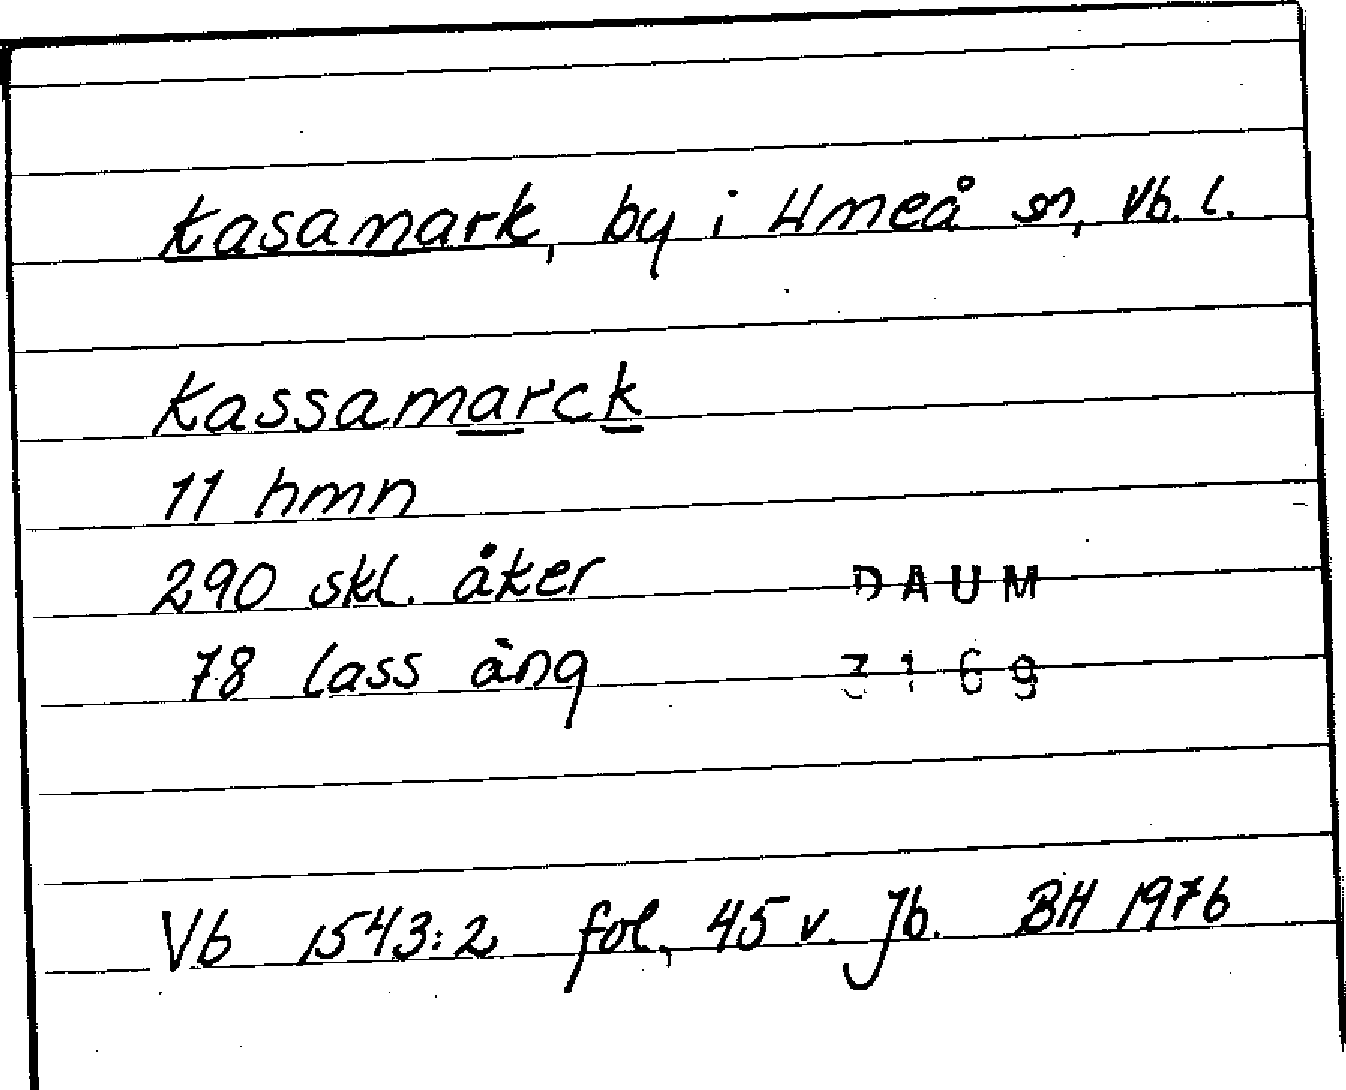 Kasamark, by i Umeå sn, Vb. l.
Kassamarck
11 hmn
290 skl. åker
DAUM
78 lass äng
3169
Vb 1543:2 fol. 45 v. Jb. BH 1976